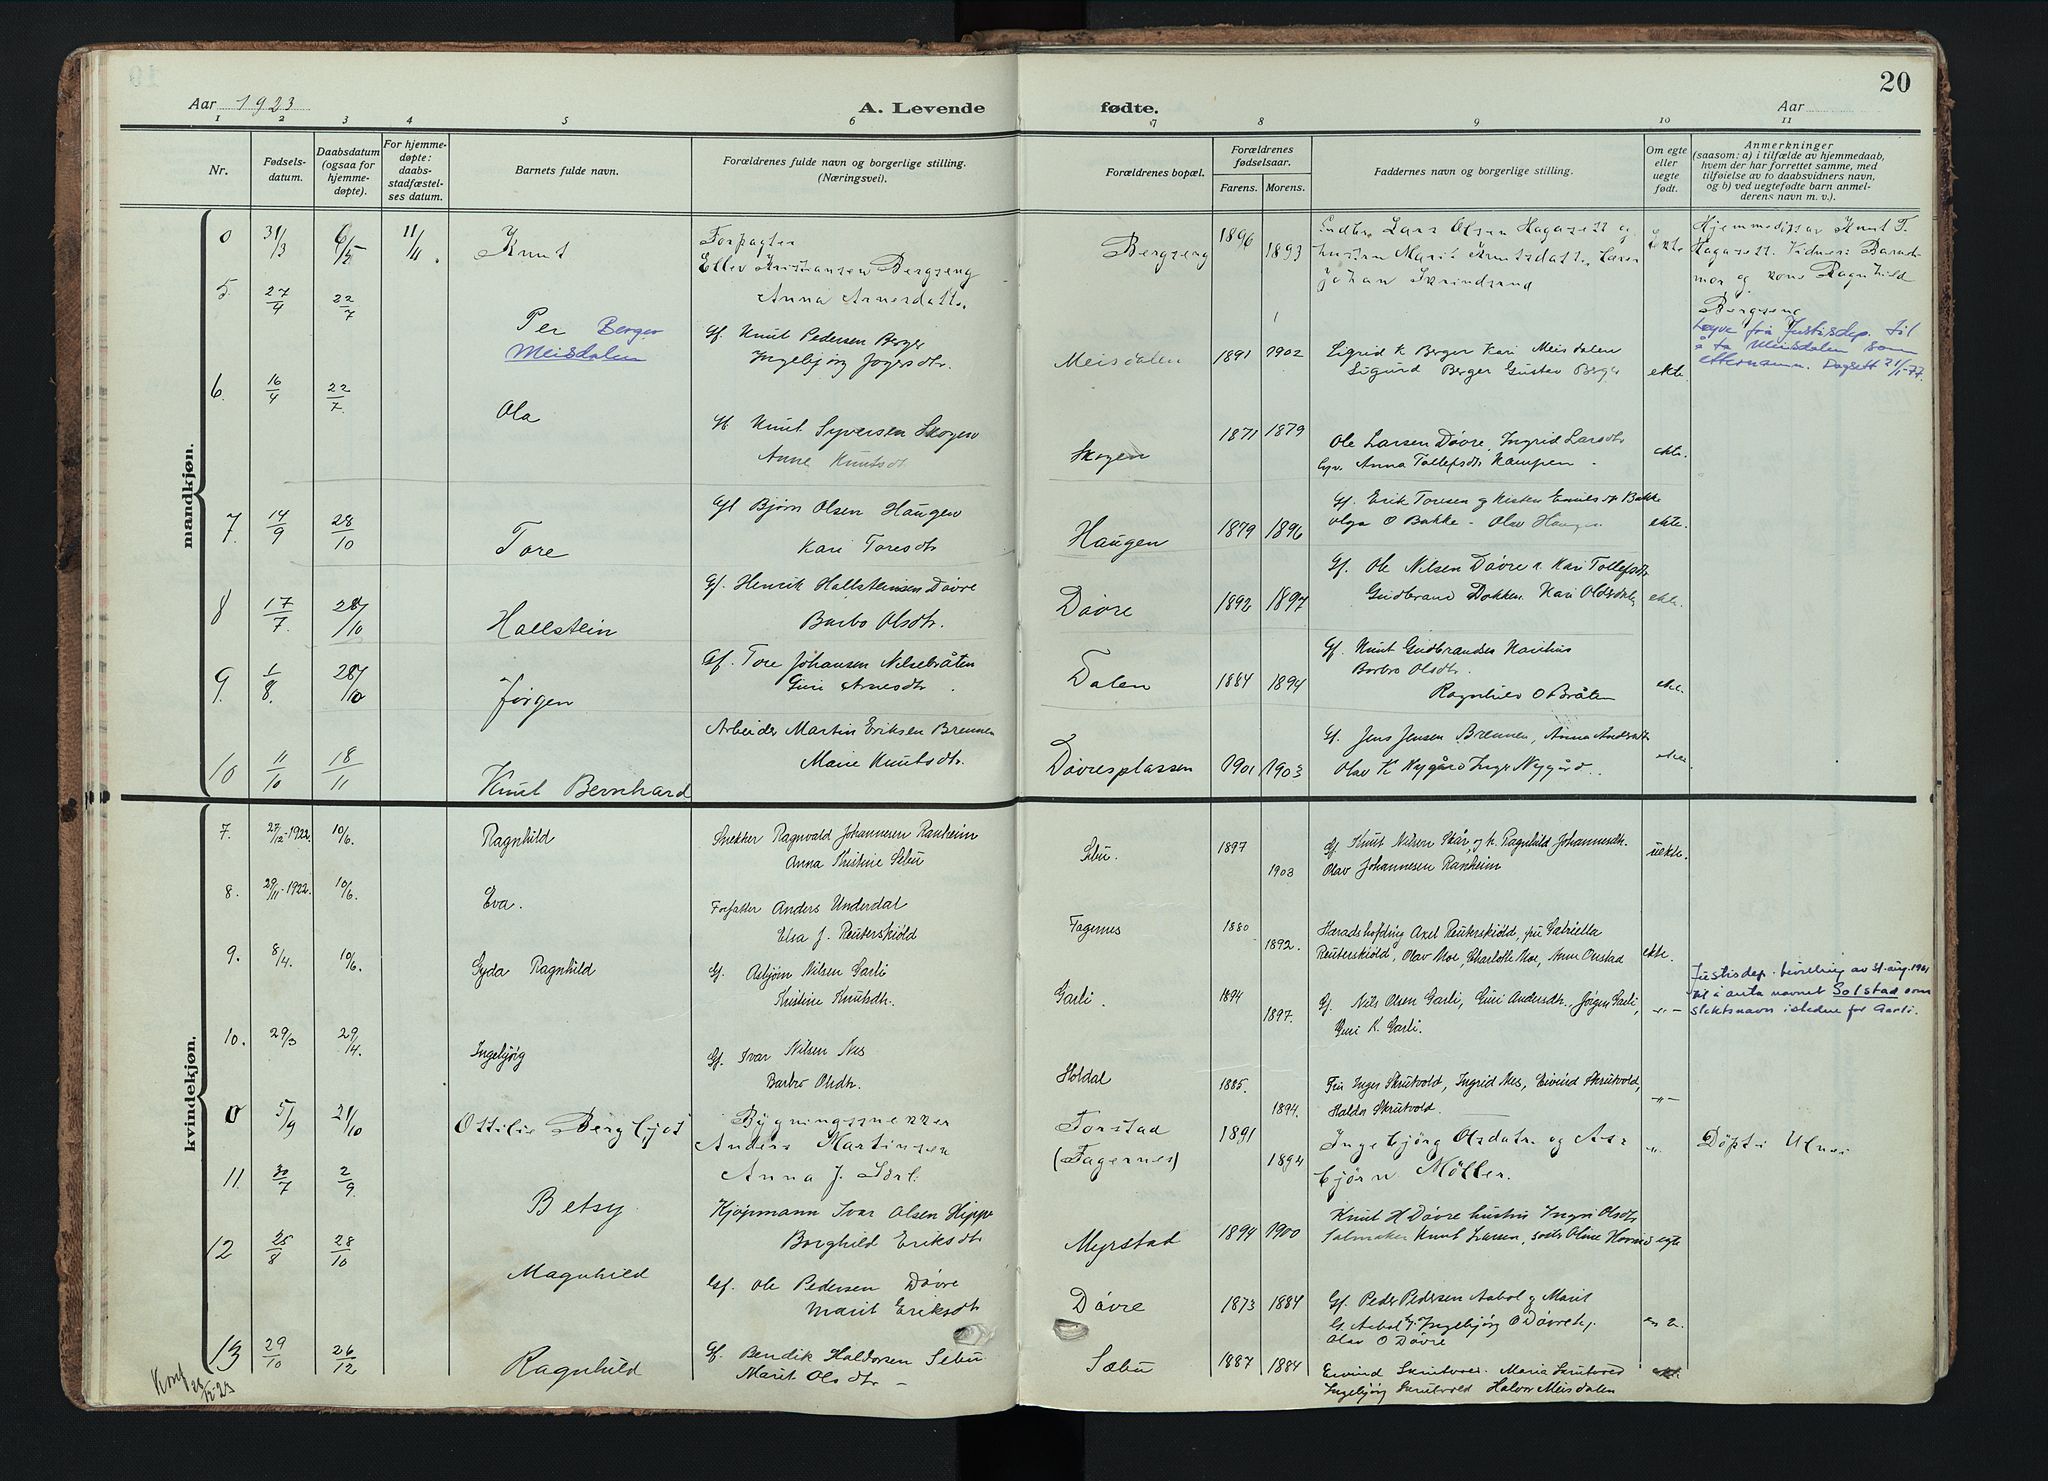 Aar 1923
A. Levende fødte.
Aar
20
1 2 3 4 5 6 7 8 9 10 11
Nr.
Fødsels-
datum.
Daabsdatum
(ogsaa for
hjemme-
døpte).
For hjemme-
døpte:
daabs-
stadfæstel-
ses datum.
Barnets fulde navn.
Forældrenes fulde navn og borgerlige stilling.
(Næringsvei).
Forældrenes bopæl.
Forældrenes
fødselsaar.
Farens. Morens.
Faddernes navn og borgerlige stilling.
Om egte
eller
uegte
født.
Anmerkninger
(saasom: a) i tilfælde av hjemmedaab,
hvem der har forrettet samme, med
tilføielse av to daabsvidners navn,
og b) ved uegtefødte barn anmel-
derens navn m. v.).
mandkjøn.
0 31/3 6/5 11/4. Knut
Forpagter
Ellev Kristiansen Bergseng
Anna Arnesdatter
Bergseng 1896 1893
Lars Olsen Hagasett og
hustru Marit Knutsdatter, Lars
Johan
Hjemmedøpt av Knut T.
Hagasett. Vidner: Barnets
mor og kone Ragnhild
Bergseng
5. 27/4 22/7 Per Berger
Meisdalen
Gf. Knut Pedersen Berger
Ingebjørg Jørgensdtr.
Meisdalen 1891 1902
Sigrid K Berger Kari Meisdalen
Sigurd Berger Gustav Berger
ekte.
Løyve fra Justisdep. til
å ta Meisdalen som
etternamn. Dagsett 21/1-77.
6. 16/4 22/7 Ola
Gf Knut Syversen Skogen
Anne Knutsdt
Skogen 1871 1879
Ole Larsen Døvre, Ingrid Larsdtr
Anna Tollefsdtr Kampen
ekte.
7. 14/9 28/10 Tore
Gf Bjørn Olsen Haugen
Kari Toresdtr
Haugen 1879 1896
Gf. Erik Toresen og Bakke
Olga O Bakke - Olav Haugen
ekte.
8 17/7. 28/10 Hallstein
Gf. Henrik Hallsteinsen Døvre
Barbo Olsdtr.
Døvre 1892 1897
Gf. Ole Nilsen Døvre Kari Tollefsdtr
Gudbrand Dokken. Kari
ekte.
9. 1/8. 28/10 Jørgen
Gf. Tore Johansen Nilsebråten
Guri Arnesdtr.
Dalen 1884 1894
Gf. Knut Gudbrandsen
Barbro Olsdtr.
Ragnhild O Bråten
ekte.
10 11/10 18/11 Knut Bernhard
Arbeider Martin Eriksen Brennen
Marie Knutsdtr.
Døvresplassen 1901 1903
Gf. Jens Jensen Brennen, Anna Andersdtr
Olav K Nygård Inga Nygård.
ekte.
kvindekjøn.
7. 27/12-1922. 10/6. Ragnhild
Snekker Ragnvald Johannesen Ranheim
Anna Kristine Sebu
Sebu. 1897 1903
Gf. Knut Nilsen Skår, og k. Ragnhild Johannesdtr.
Olav Johannesen Ranheim
uekte.
8. 29/11-1922. 10/6. Eva.
Forfatter Anders Underdal
Elsa J. Reuterskiöld
Fagernes 1880 1892.
Häradshöfding Axel Reuterskiöld, fru Gabriella
Reuterskiöld, Olav Moe, Charlotte Moe, Anne Onstad
ekte.
9. 8/4. 10/6. Gyda Ragnhild
Gf. Asbjørn Nilsen Garli
Kristine Knutsdtr.
Garli. 1894 1897.
Gf. Nils Olsen Garli, Guri Andersdtr., Jørgen Garli,
Guri K. Garli.
-"-
Justisdep. beviling av 31. aug. 1961
til å anta navnet Solstad som
slektsnavn istedene for Garli.
10. 29/3 29/4. Ingebjørg
Gf. Ivar Nilsen Nes
Barbro Olsdtr.
Holdal 1885. 1894.
Fru Inger Skrutvold, Ingrid Nes, Eivind Skrutvold,
Haldor Skrutvold.
-"-
0 5/9 21/10 Ottilie Bergljot
Bygningssnekker
Anders Martinsen
Anna J.
Forstad
(Fagernes)
1891 1894
Ingebjørg Olsdatr. og As-
bjørn Möller.
-"-
Döpt i Ulnes
11. 30/7 2/9. Betsy
Kjøpmann Ivar Olsen Hippe
Borghild Eriksdtr
Myrstad 1894 1900
Knut H Døvre hustru Ingri Olsdtr
Salmaker Knut Larsen, Oline
egte
12 25/8 28/10 Magnhild
Gf. Ole Pedersen Døvre
Marit Eriksdtr
Døvre 1873 1884
Gf. Peder Pedersen Aabol og Marit
G. Aabol Ingebjørg O Døvre
Olav O Døvre
13 29/10 26/12 Ragnhild
Gf. Bendik Haldorsen Sebu
Marit Olsdtr -
Sæbu 1887 1884
Eivind Skrutvold. Maria Skrutvold
Ingebjørg Skrutvold Halvor Meisdalen
ekt.
Konf